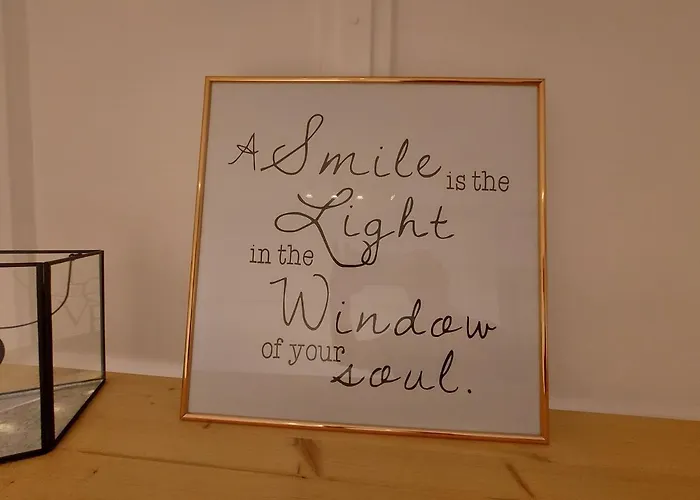 A Smile is the
Light
in the
Window
of your
soul.